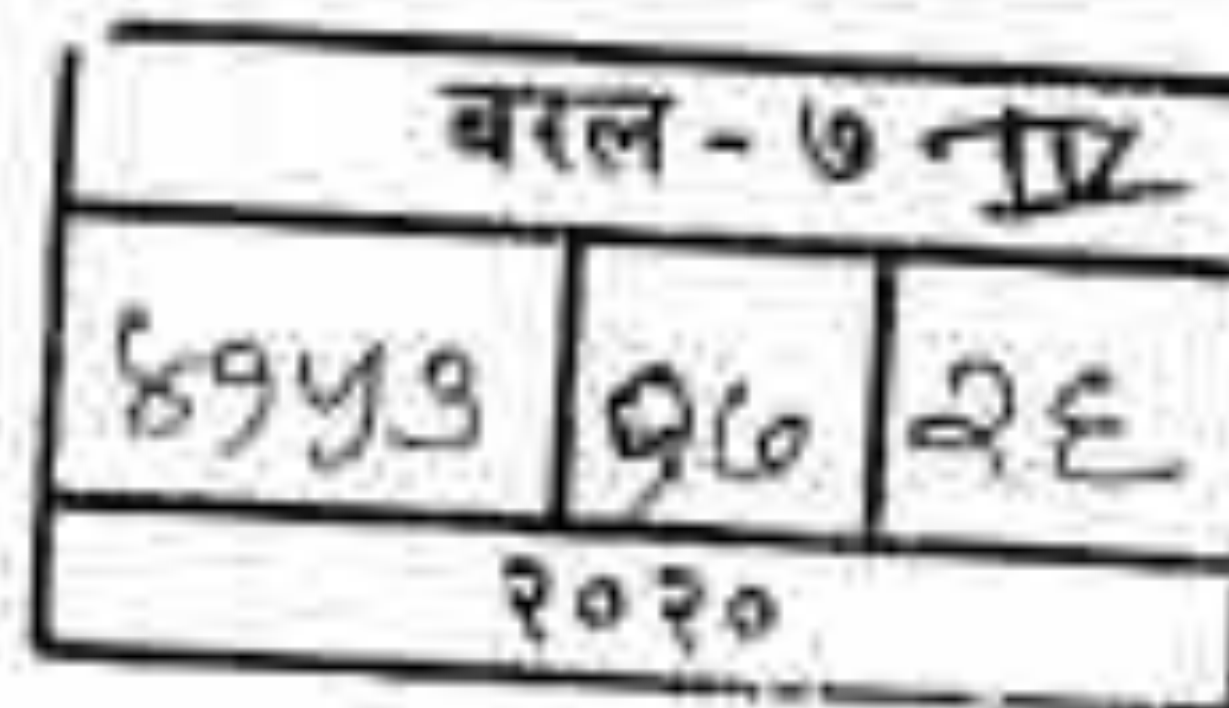 बरल - ७ IV
४१५३ १७ २६
२०२०